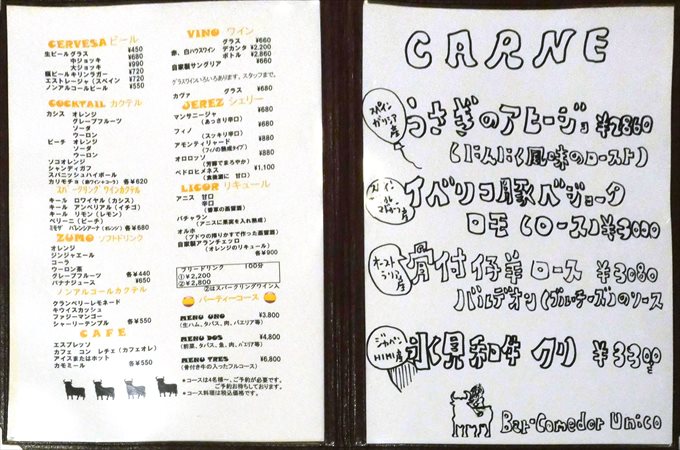 CERVESA ビール
生ビール グラス ¥450
中ジョッキ ¥680
大ジョッキ ¥990
瓶ビール キリンラガー ¥720
エストレージャ(スペイン ¥720
ノンアルコールビール ¥550
COCKTAIL カクテル
カシス オレンジ
グレープフルーツ
ソーダ
ウーロン
ピーチ オレンジ
ソーダ
ウーロン
ソコオレンジ
シャンディガフ
スパニッシュハイボール
カリモチョ(赤ワイン+コーラ) 各¥620
スパークリングワインカクテル
キール ロワイヤル(カシス)
キール アンペリアル(イチゴ)
キール リモン(レモン)
ベリーニ(ピーチ)
ミモザ バレンシアーナ(オレンジ) 各¥680
ZUMO ソフトドリンク
オレンジ
ジンジャエール
コーラ
ウーロン茶
グレープフルーツ 各¥440
バナナジュース ¥650
ノンアルコールカクテル
クランベリーレモネード
キウイスカッシュ
ファジーマンゴー
シャーリーテンプル 各¥550
CAFE
エスプレッソ
カフェ コン レチェ(カフェオレ)
アイスまたはホット
カモミール 各¥550
VINO ワイン
グラス ¥660
赤、白ハウスワイン デカンタ ¥2,200
ボトル ¥2,860
自家製サングリア ¥660
グラスワインいろいろあります。スタッフまで。
カヴァ グラス ¥680
JEREZ シェリー
マンサニージャ ¥680
(あっさり辛口)
フィノ ¥680
(スッキリ辛口)
アモンティリャード ¥680
(フィノの熟成タイプ)
オロロッソ ¥680
(芳醇でまろやか)
ペドロヒメネス ¥1,100
(食後酒に 甘口)
LICOR リキュール
アニス 甘口
辛口
(香草の蒸留酒)
パチャラン
(アニスに果実を入れ熟成)
オルホ
(ブドウの搾りかすで作った蒸留酒)
自家製アランチェッロ
(オレンジのリキュール)
各¥900
フリードリンク 100分
①¥2,200
②¥2,800
②はスパークリングワイン入
パーティーコース
MENU UNO ¥3,800
(生ハム、タパス、肉、パエリア等)
MENU DOS ¥4,800
(前菜、タパス、魚、肉、パエリア等)
MENU TRES ¥6,800
(骨付き牛の入ったフルコース)
*コースは4名様〜、ご予約が必要です。
ご予約お待ちしております。
*コース料理は税込価格です。
CARNE
スペイン
ガリシア
産
うさぎのアヒージョ ¥2860
(にんにく風味のロースト)
スペイン
産
イベリコ豚ベジョータ
ロモ(ロース) ¥3000
オースト
ラリア産
骨付仔羊ロース ¥3080
バルデオン(ブルーチーズ)のソース
ジャパン
HIMI産
氷見和牛 クリ ¥3300
Bar-Comedor Unico